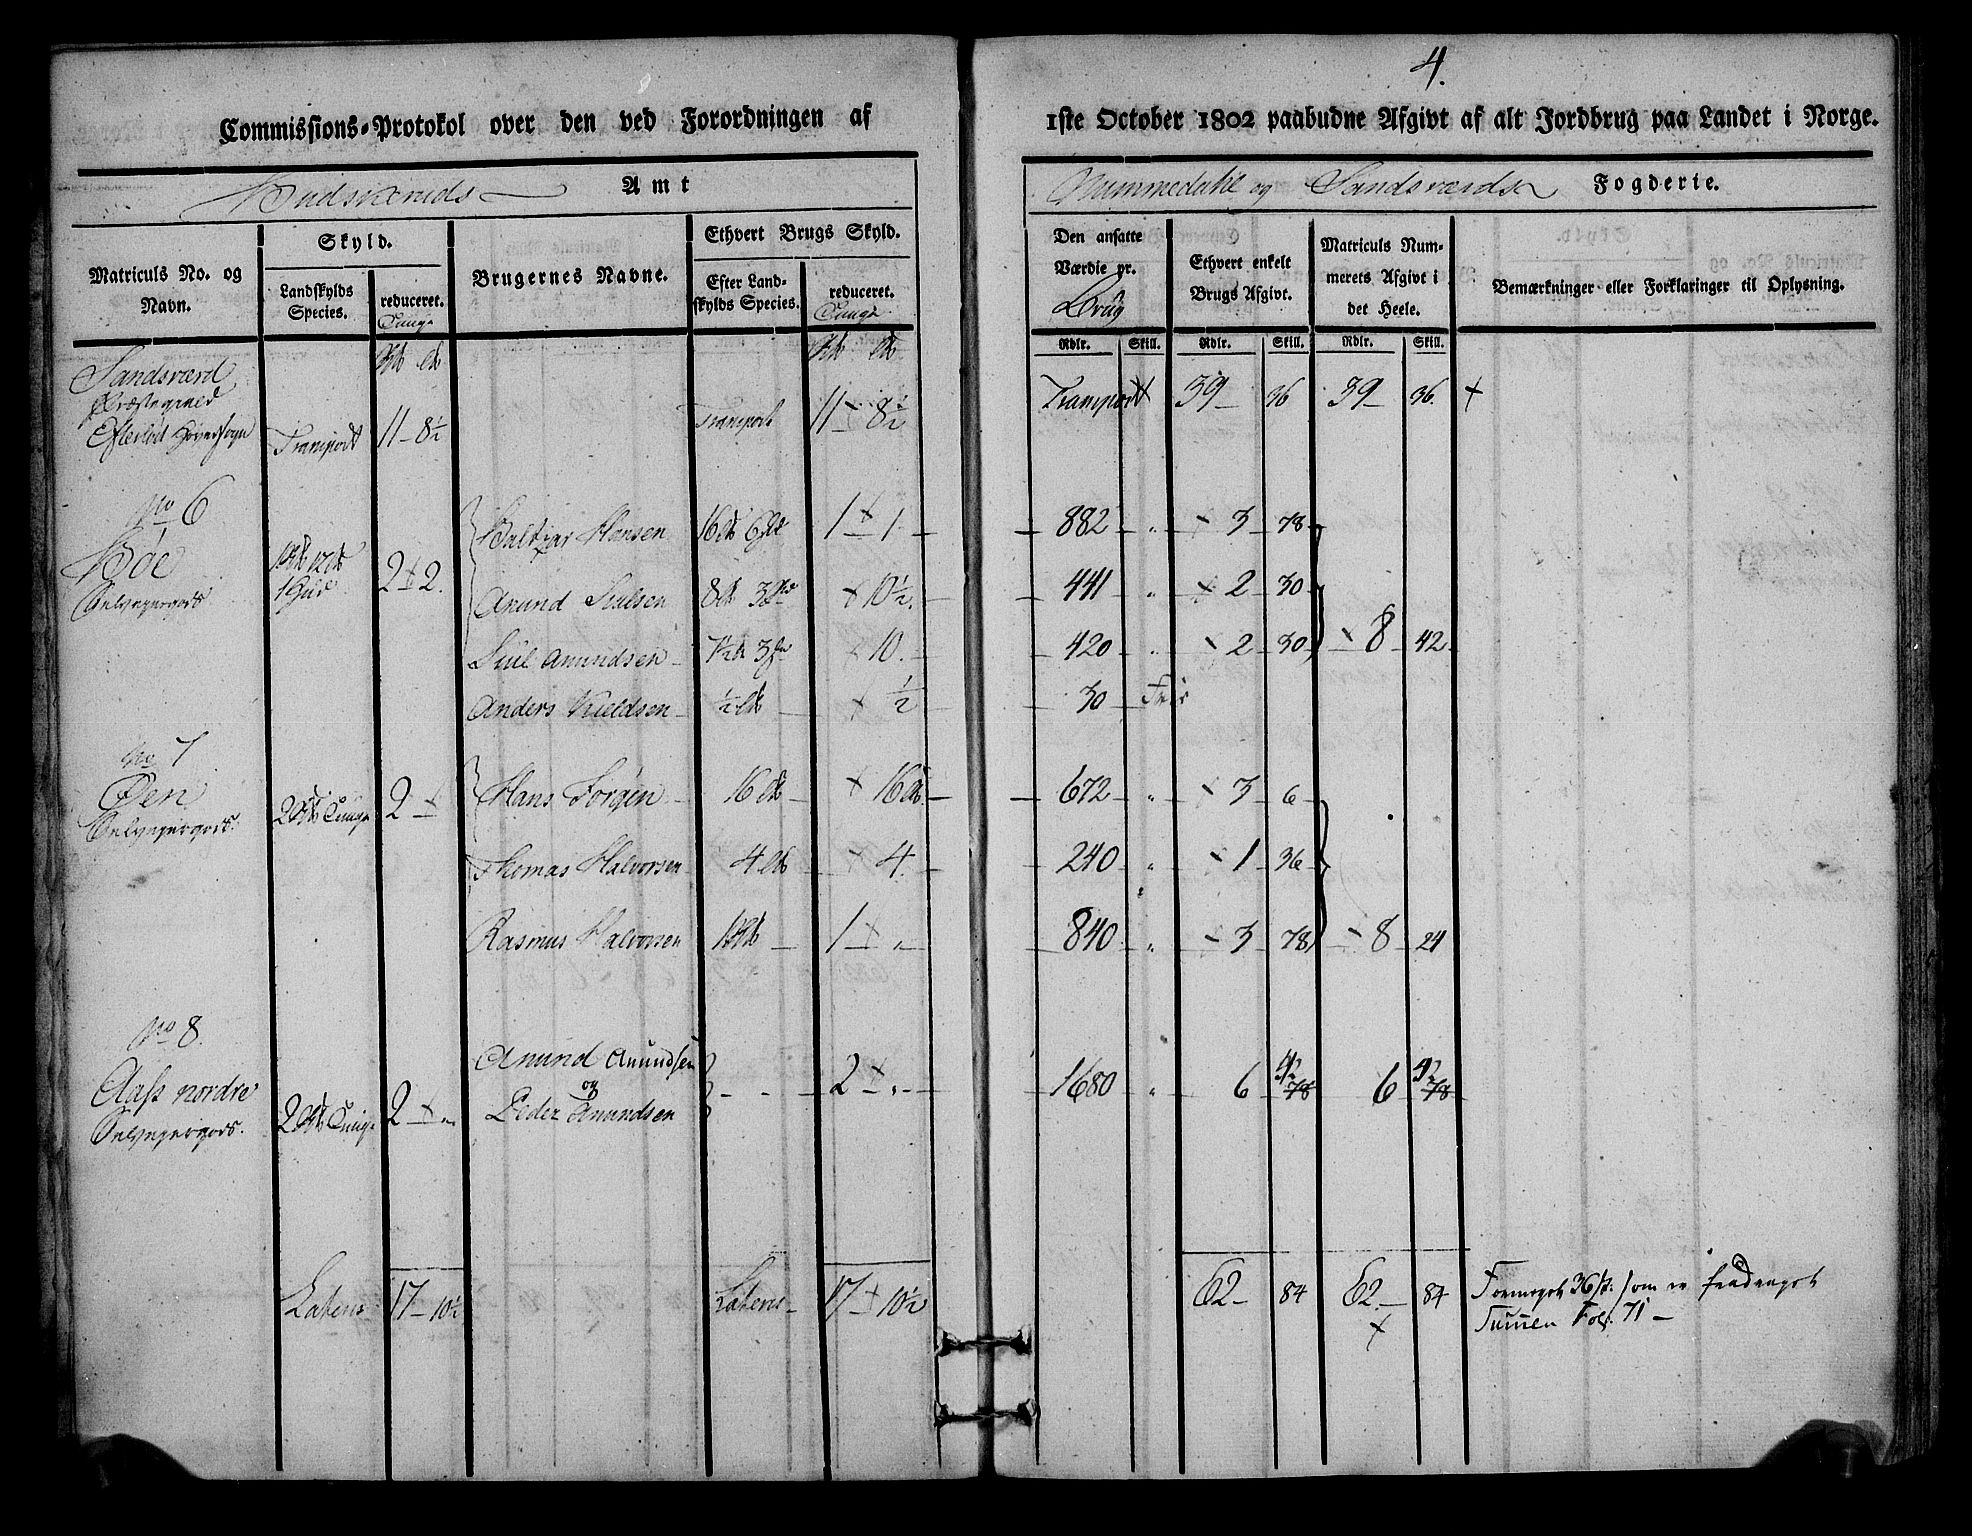 4.
Commissions-Protokol over den ved Forordningen af 1ste October 1802 paabudne Afgivt af alt Jordbrug paa Landet i Norge.
Budskeruds Amt Nummedahl og Sandsværds Fogderie.
Matriculs No. og Navn. Skyld. Landskylds Species. reduceret. Tunge Brugernes Navne. Ethvert Brugs Skyld. Efter Landskylds Species. reduceret. Tunge
Den ansatte Værdie pr. Brug Ethvert enkelt Brugs Afgivt. Matriculs Nummerets Afgivt i det Heele. Bemærkninger eller Forklaringer til Oplysning.
Rdlr. Skill. Rdlr. Skill. Rdlr. Skill.
Sandsværd
Præstegield
Eftelød Hovedsogn Transport 11 - 8½ Transport 11 x 8½ Transport 39 - 36 39 - 36. x
No 6
Bøe
Selveyergods 2 x 2.
Baltzar Hansen 1 x 1 - 882 - " x 3 - 78
Anund Siulsen x 10½. - 441 - " x 2 - 30
Siul Anundsen x 10. - 420 - " x 2 - 30 x 8 - 42
Anders Kieldsen x ½ - 30 - Frie
No 7
Øen
Selveyergods. 2 Tunge 2 x
Hans Jørgen 16 x 16 - 672 - " x 3 - 6
Thomas Halvorsen 4 x 4. - 240 - " x 1 - 36
Rasmus Halvorsen 1 1 x " - 840 - " x 3 - 78 x 8 - 24
No 8.
Aass nordre
Selveyergods. 2 Tunge 2 x "
Anund Anundsen
og
Peder Anundsen - - 2 x " - 1680 - " 6 42 78 6 42 78
Latens 17 - 10½ Latens - 17 x 10½ 62 - 84 62. - 84
x
36 s: som er fradraget
Fols. 71 -